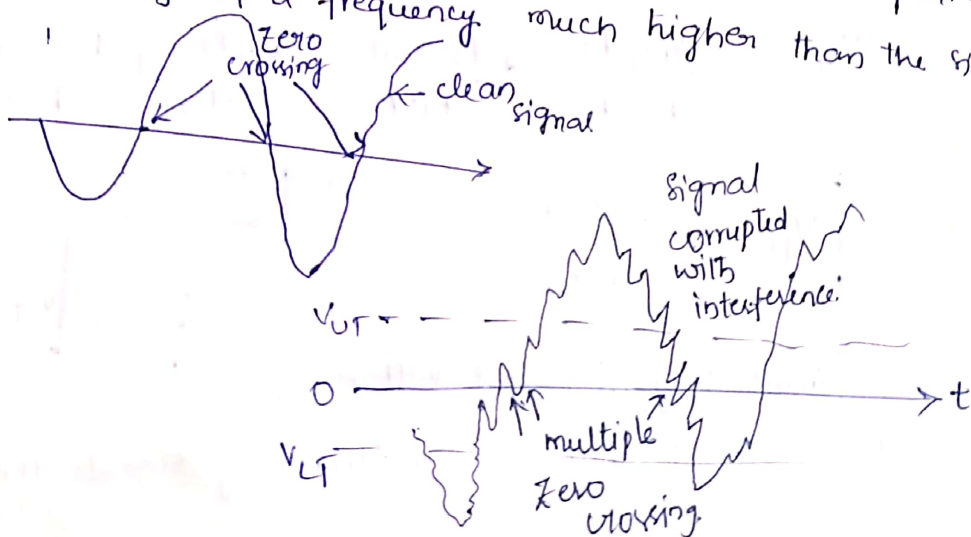 a frequency much higher than the
zero
crossing
← clean
signal
signal
corrupted
with
interference.
VUT
0
t
VLT
multiple
zero
crossing.